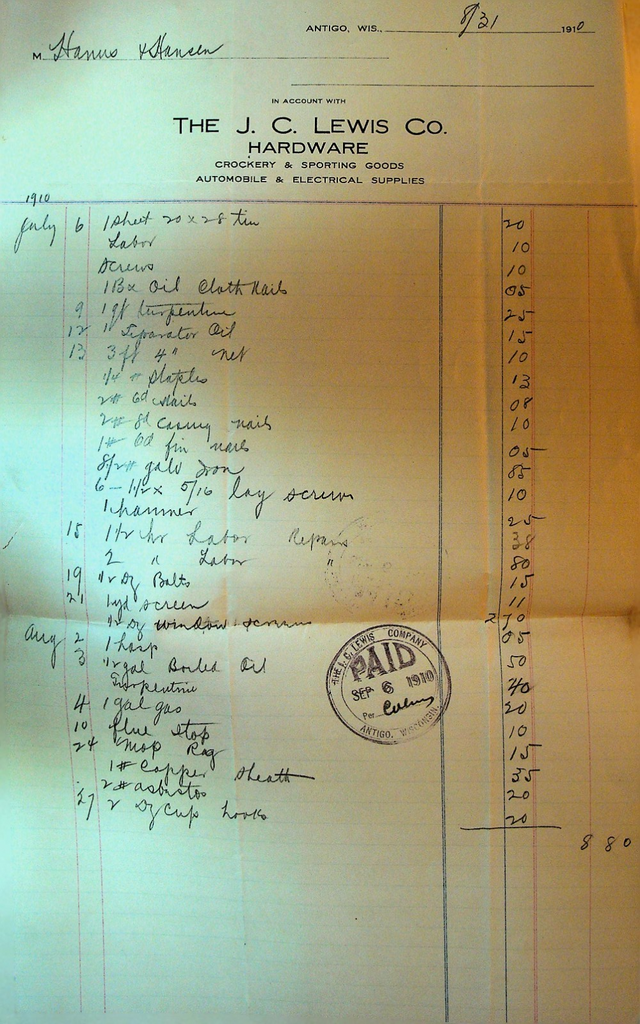 ANTIGO, WIS., 8/31 1910
M Hanus & Hansen
IN ACCOUNT WITH
THE J. C. LEWIS CO.
HARDWARE
CROCKERY & SPORTING GOODS
AUTOMOBILE & ELECTRICAL SUPPLIES
1910
July 6 1 Sheet 20 x 28 tin 20
Labor 10
Screws 10
1 Bx Oil Cloth Nails 05
9 1 qt turpentine 25
12 1 " Separator Oil 15
13 3 ft 4" net 10
1/4 # Staples 13
2# 6d Nails 08
2# 8d Casing nails 10
1# 6d fin nails 05
8 1/2# galv Iron 85
6 - 1 1/2 x 5/16 lag screws 10
1 hammer 25
15 1 1/2 hr Labor Repairs 38
2 " Labor " 80
19 1/2 Dz Bolts 15
21 1 yd screen 11
1/2 Dz window screens 2 70
Aug 2 1 hasp 05
3 1/2 gal Boiled Oil 50
Turpentine 40
4 1 gal gas 20
10 flue Stop 10
24 " Mop Rag 15
1# Copper Sheath 35
2# asbestos 20
27 2 Dz Cup hooks 20
8 80
THE J. C. LEWIS COMPANY
PAID
SEP 6 1910
Per
ANTIGO, WISCONSIN.